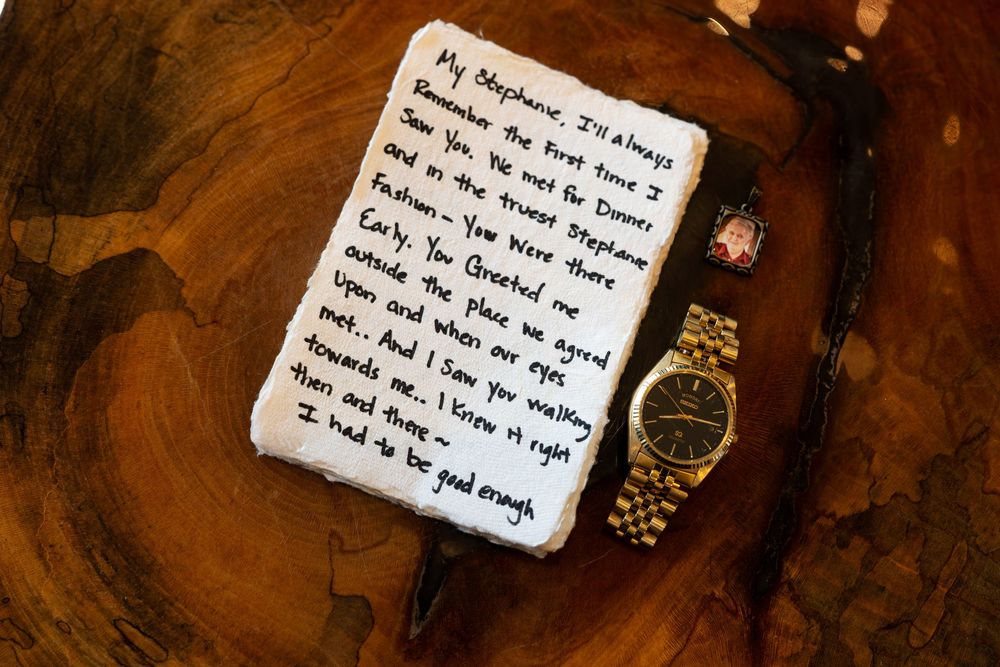 My Stephanie, I'll always
Remember the First time I
Saw You. We met for Dinner
and in the truest Stephanie
Fashion - You were there
Early. You Greeted me
outside the place we agreed
Upon and when our eyes
met.. And I saw you walking
towards me.. I knew it right
then and there ~
I had to be good enough
SEIKO